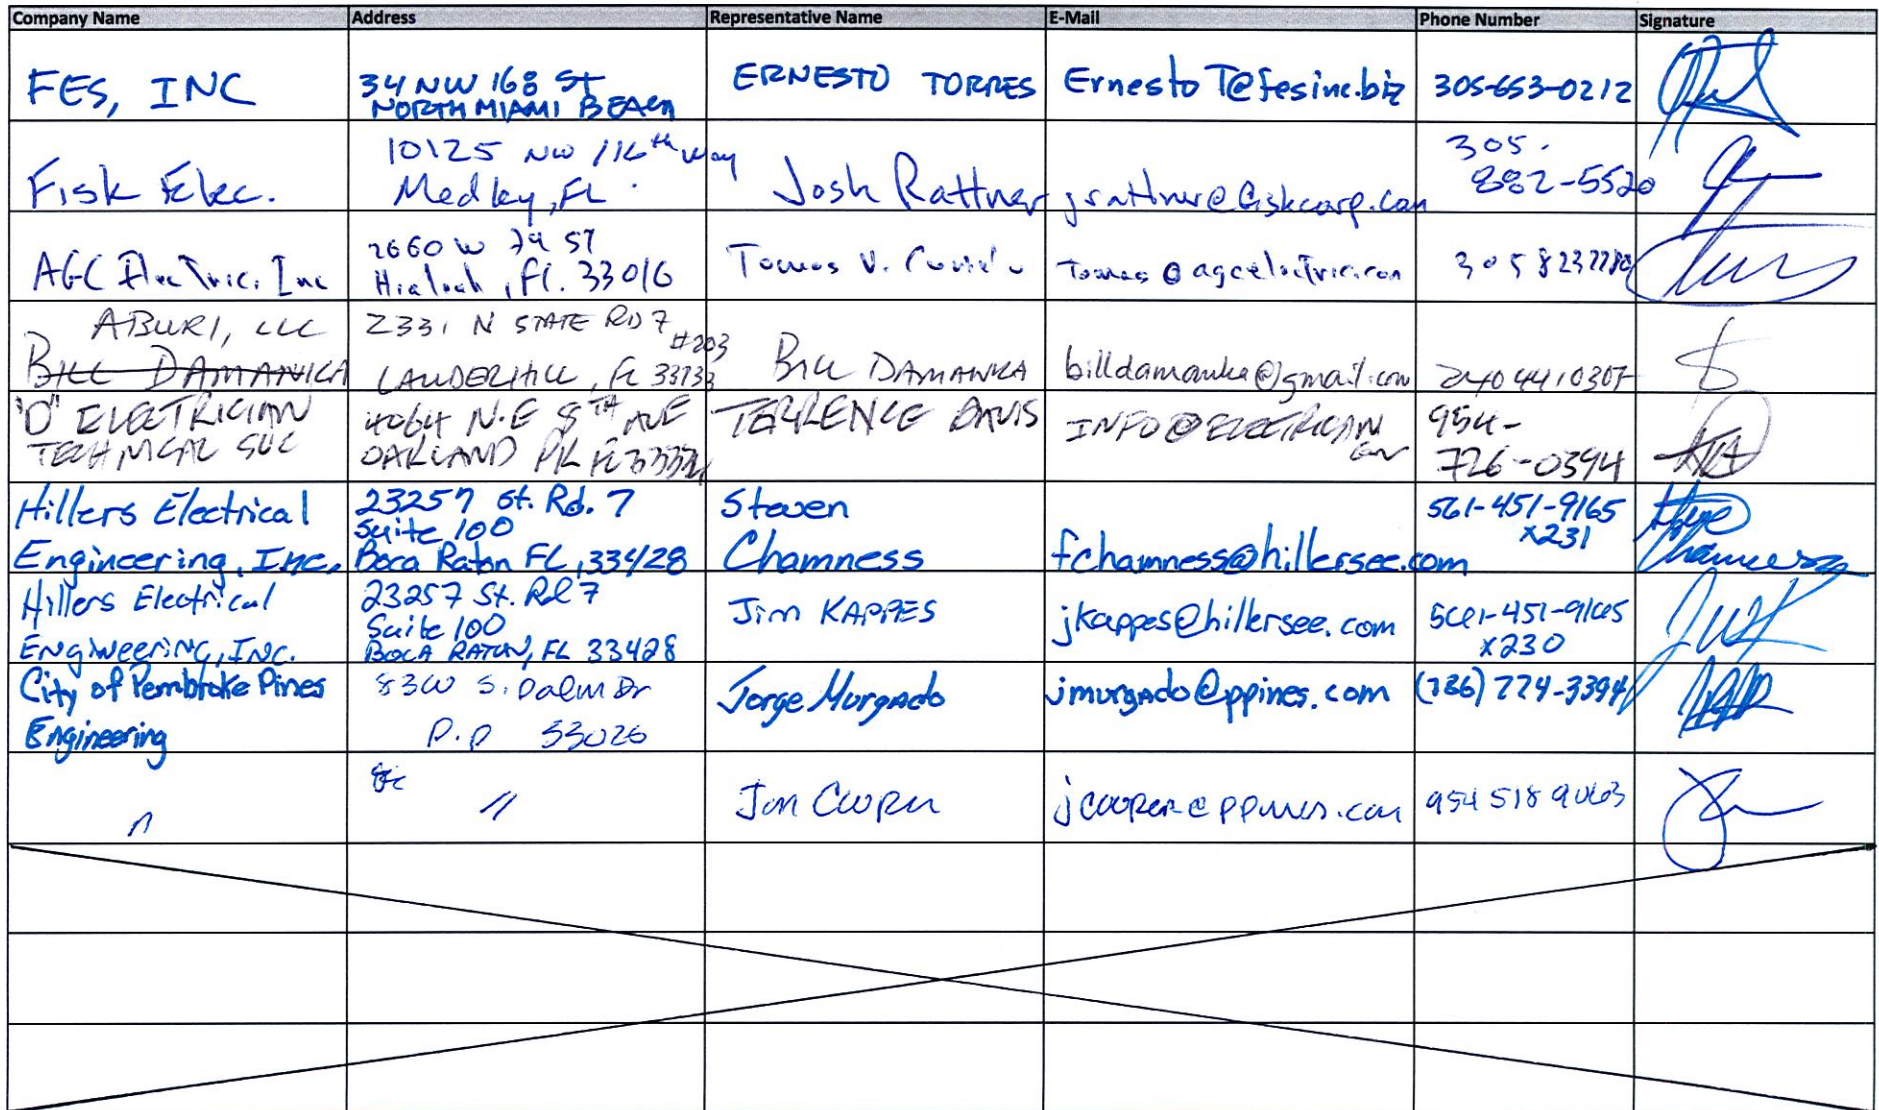 Company Name Address Representative Name E-Mail Phone Number Signature
FES, INC
34 NW 168 ST
NORTH MIAMI BEACH
ERNESTO TORRES
ErnestoT@fesinc.biz
305-653-0212
Fisk Elec.
10125 NW 116th Way
Medley, FL
Josh Rattner
jrattner@fiskcorp.com
305.
882-5520
AGC Electric, Inc
2660 W 79 ST
Hialeah, Fl. 33016
Tomas V.
Tomas@agcelectric.com
ABURI, LLC
BILL DAMANKA
2331 N STATE RD 7
#203
LAUDERHILL, FL
BILL DAMANKA
billdamanka@gmail.com
2404410307
"D" ELECTRICIAN
TECHNICAL SVC
4064 N.E 5TH AVE
OAKLAND PK FL 33334
TERRENCE DAVIS
INFO@ELECTRICIAN
954-
726-0394
Hillers Electrical
Engineering, Inc.
23257 St. Rd. 7
Suite 100
Boca Raton FL, 33428
Steven
Chamness
fchamness@hillersee.com
561-451-9165
x231
Hillers Electrical
ENgiNeeriNG, INC.
23257 St. Rd 7
Suite 100
BOCA RATON, FL 33428
Jim KAPPES
jkappes@hillersee.com
561-451-9165
x230
City of Pembroke Pines
Engineering
8300 S. Palm Dr
P.P 33026
Jorge Murgado
jmurgado@ppines.com
(786) 774-3394
"
"
Jon Cooper
jcooper@ppines.com
954 518 9063